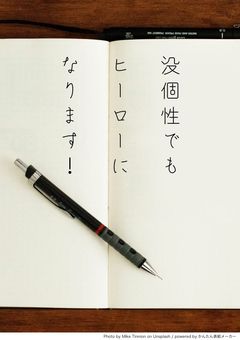 没個性でも
ヒーローに
なります！
Photo by Mike Tinnion on Unsplash / powered by かんたん表紙メーカー